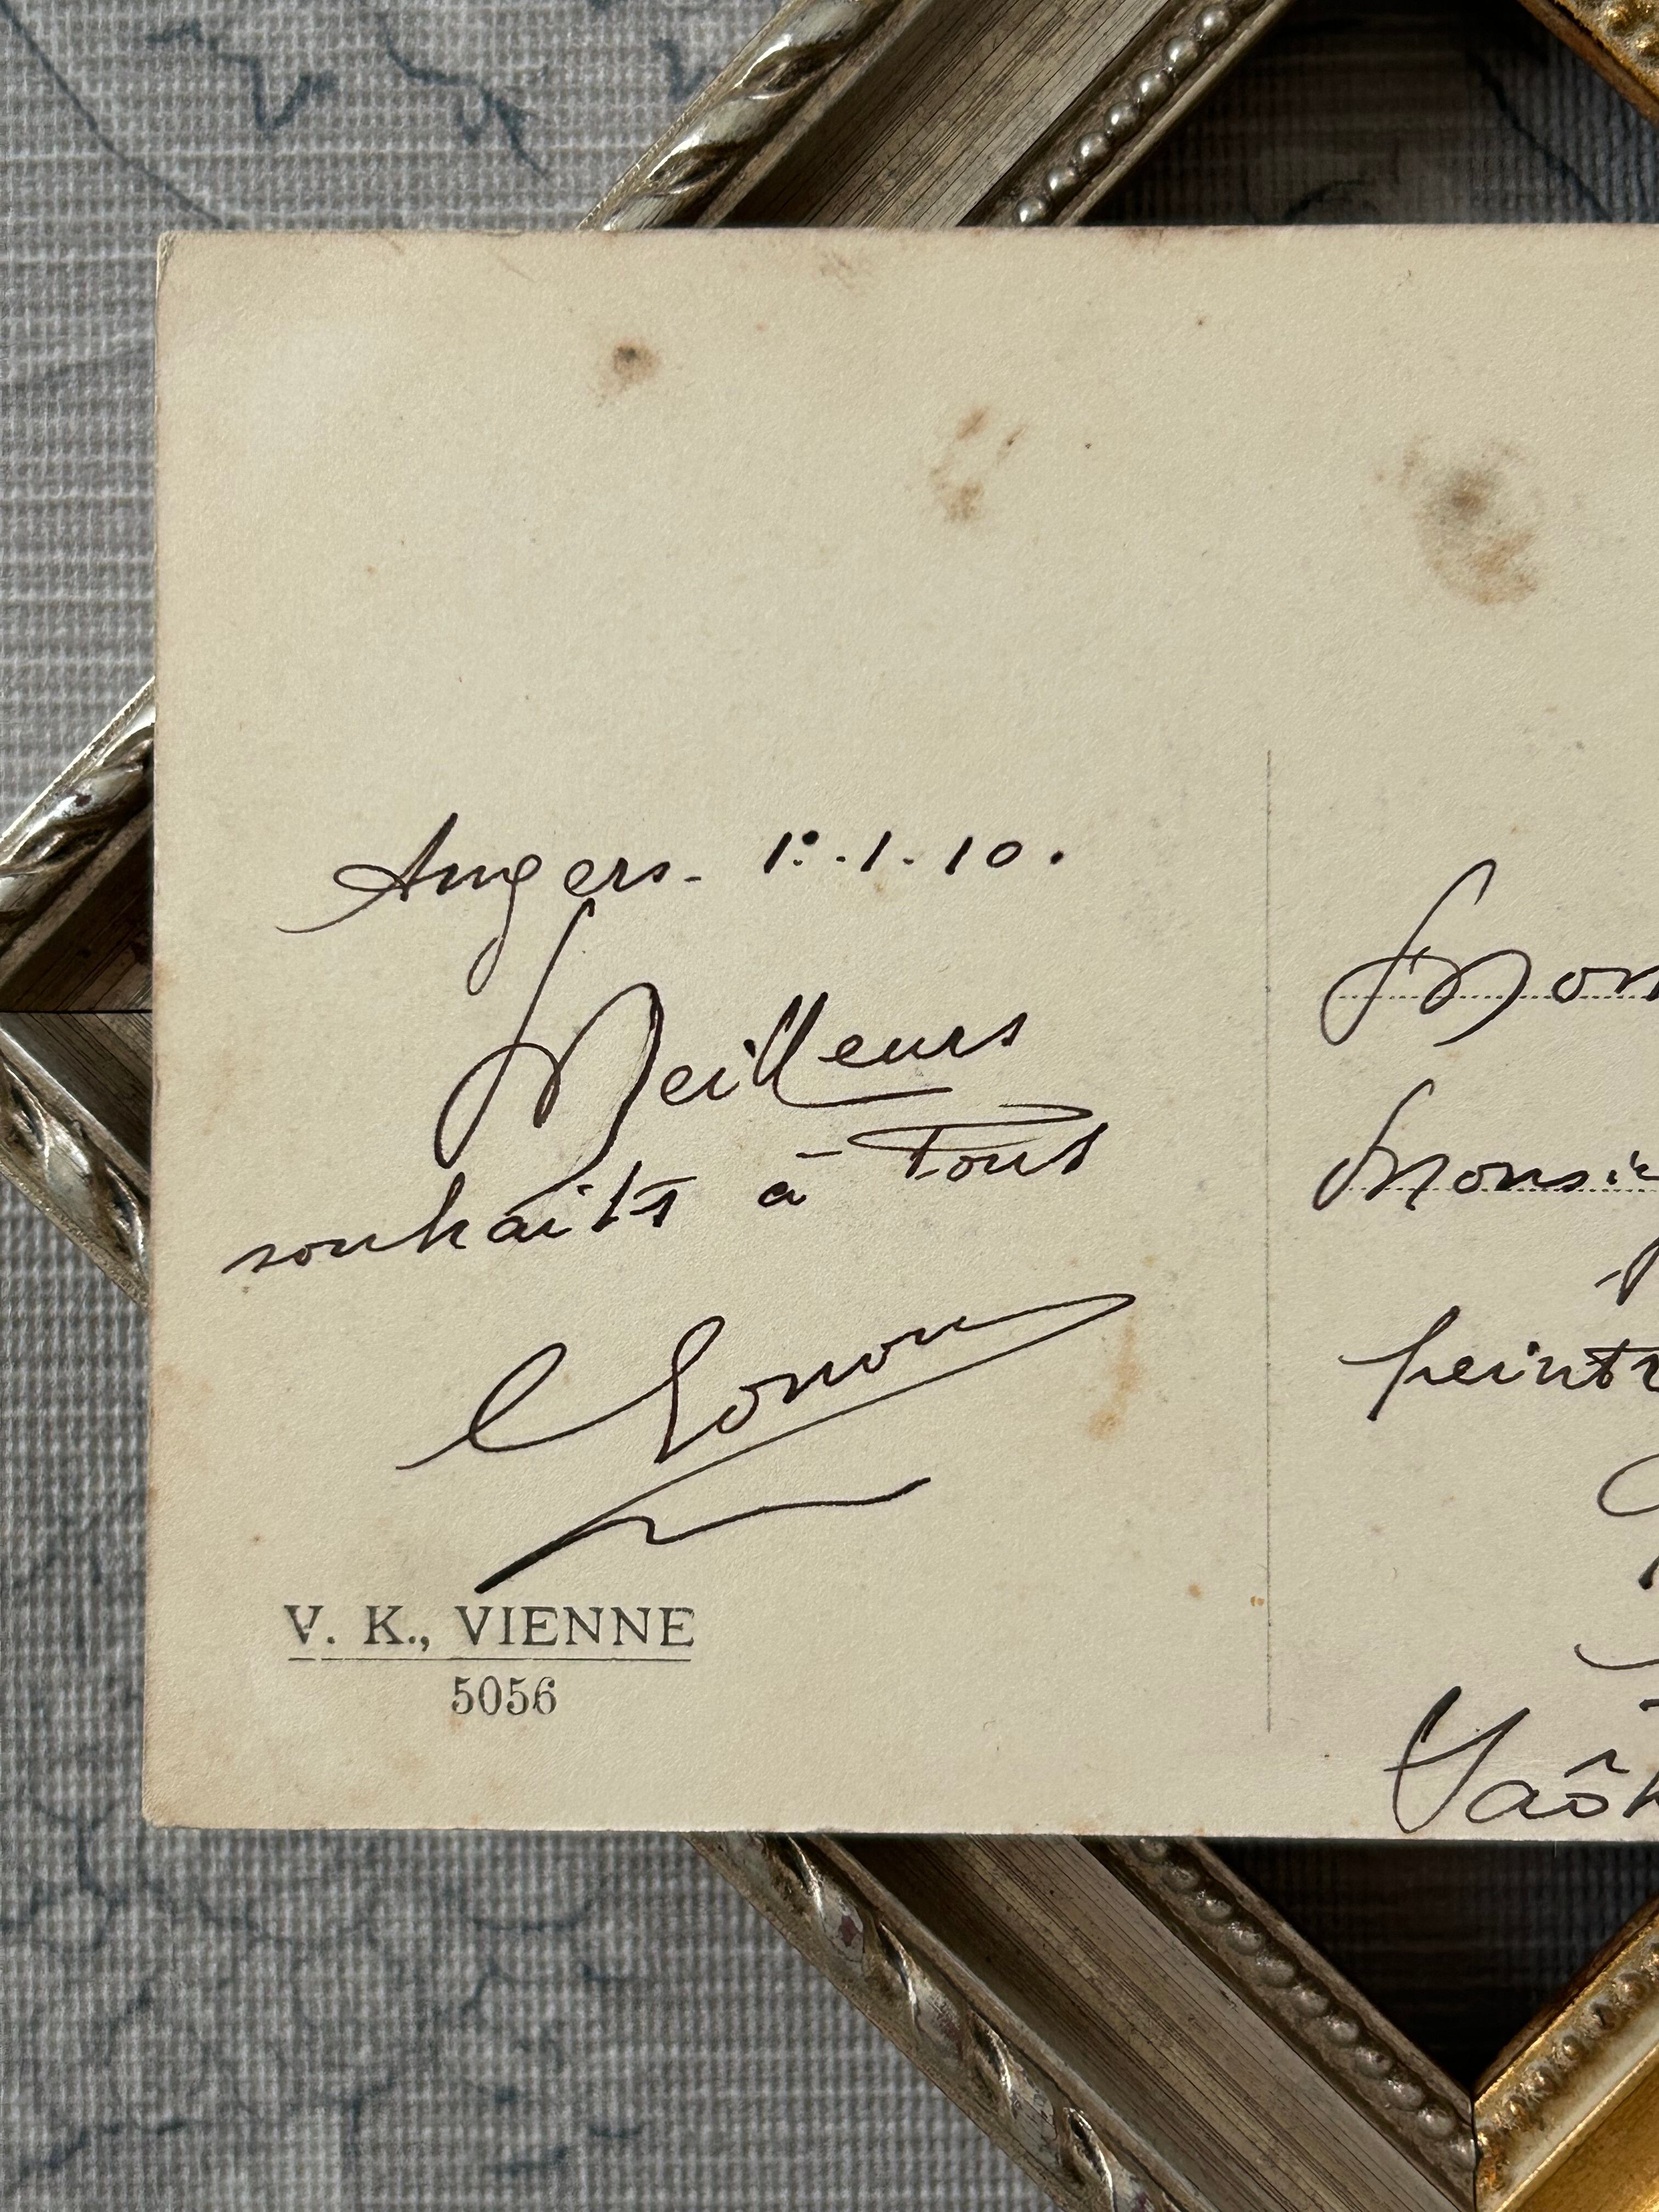 Angers - 1º.1.10.
Meilleurs
souhaits à Tous
V. K., VIENNE
5056
Mon
Monsie
peintr
Saô